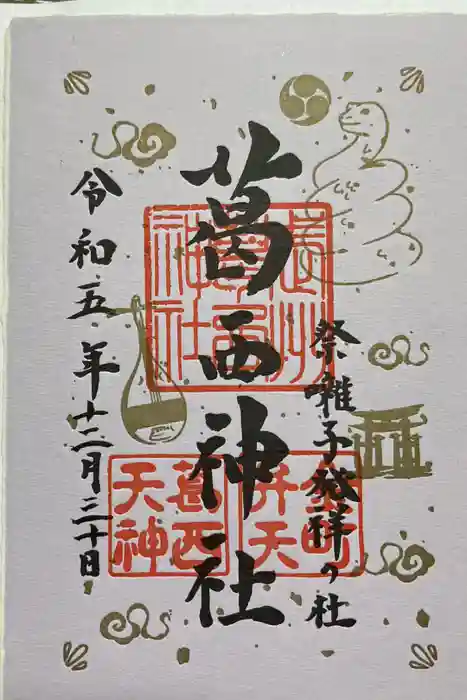 祭囃子発祥の社
葛西神社
令和五年十二月三十日
葛西神社
葛西天神
金町弁天